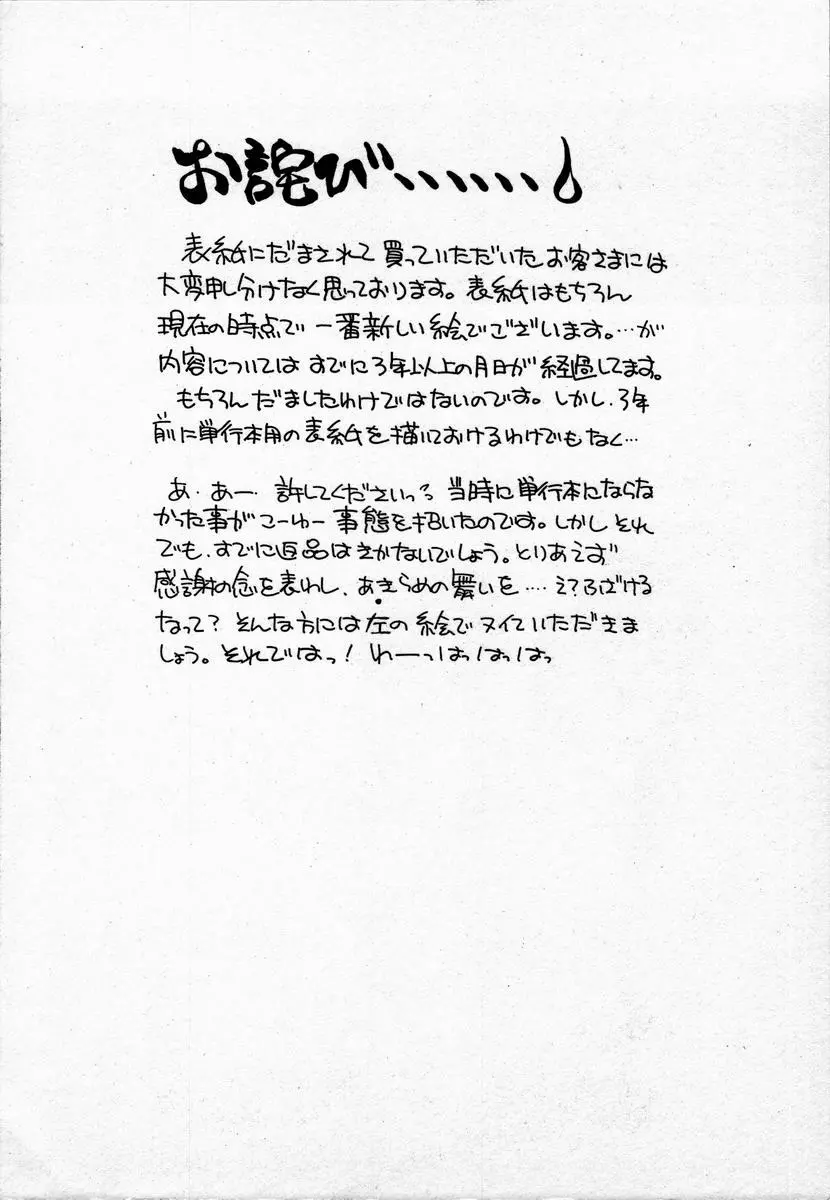 お詫び、、、、、、
表紙にだまされて買っていただいたお客さまには
大変申し分けなく思っております。表紙はもちろん
現在の時点で一番新しい絵でございます。…が
内容についてはすでに3年以上の月日が経過してます。
もちろんだましたわけではないのです。しかし、3年
前に単行本用の表紙を描いておけるわけでもなく…
あ・あー・許してくださいっ?当時に単行本にならな
かった事がこーゆー事態を招いたのです。しかしそれ
でも、すでに返品はきかないでしょう。とりあえず
感謝の念を表わし、あきらめの舞いを……え?ふざける
なって?そんな方には左の絵でヌイていただきま
しょう。それではっ!わーっはっはっはっ